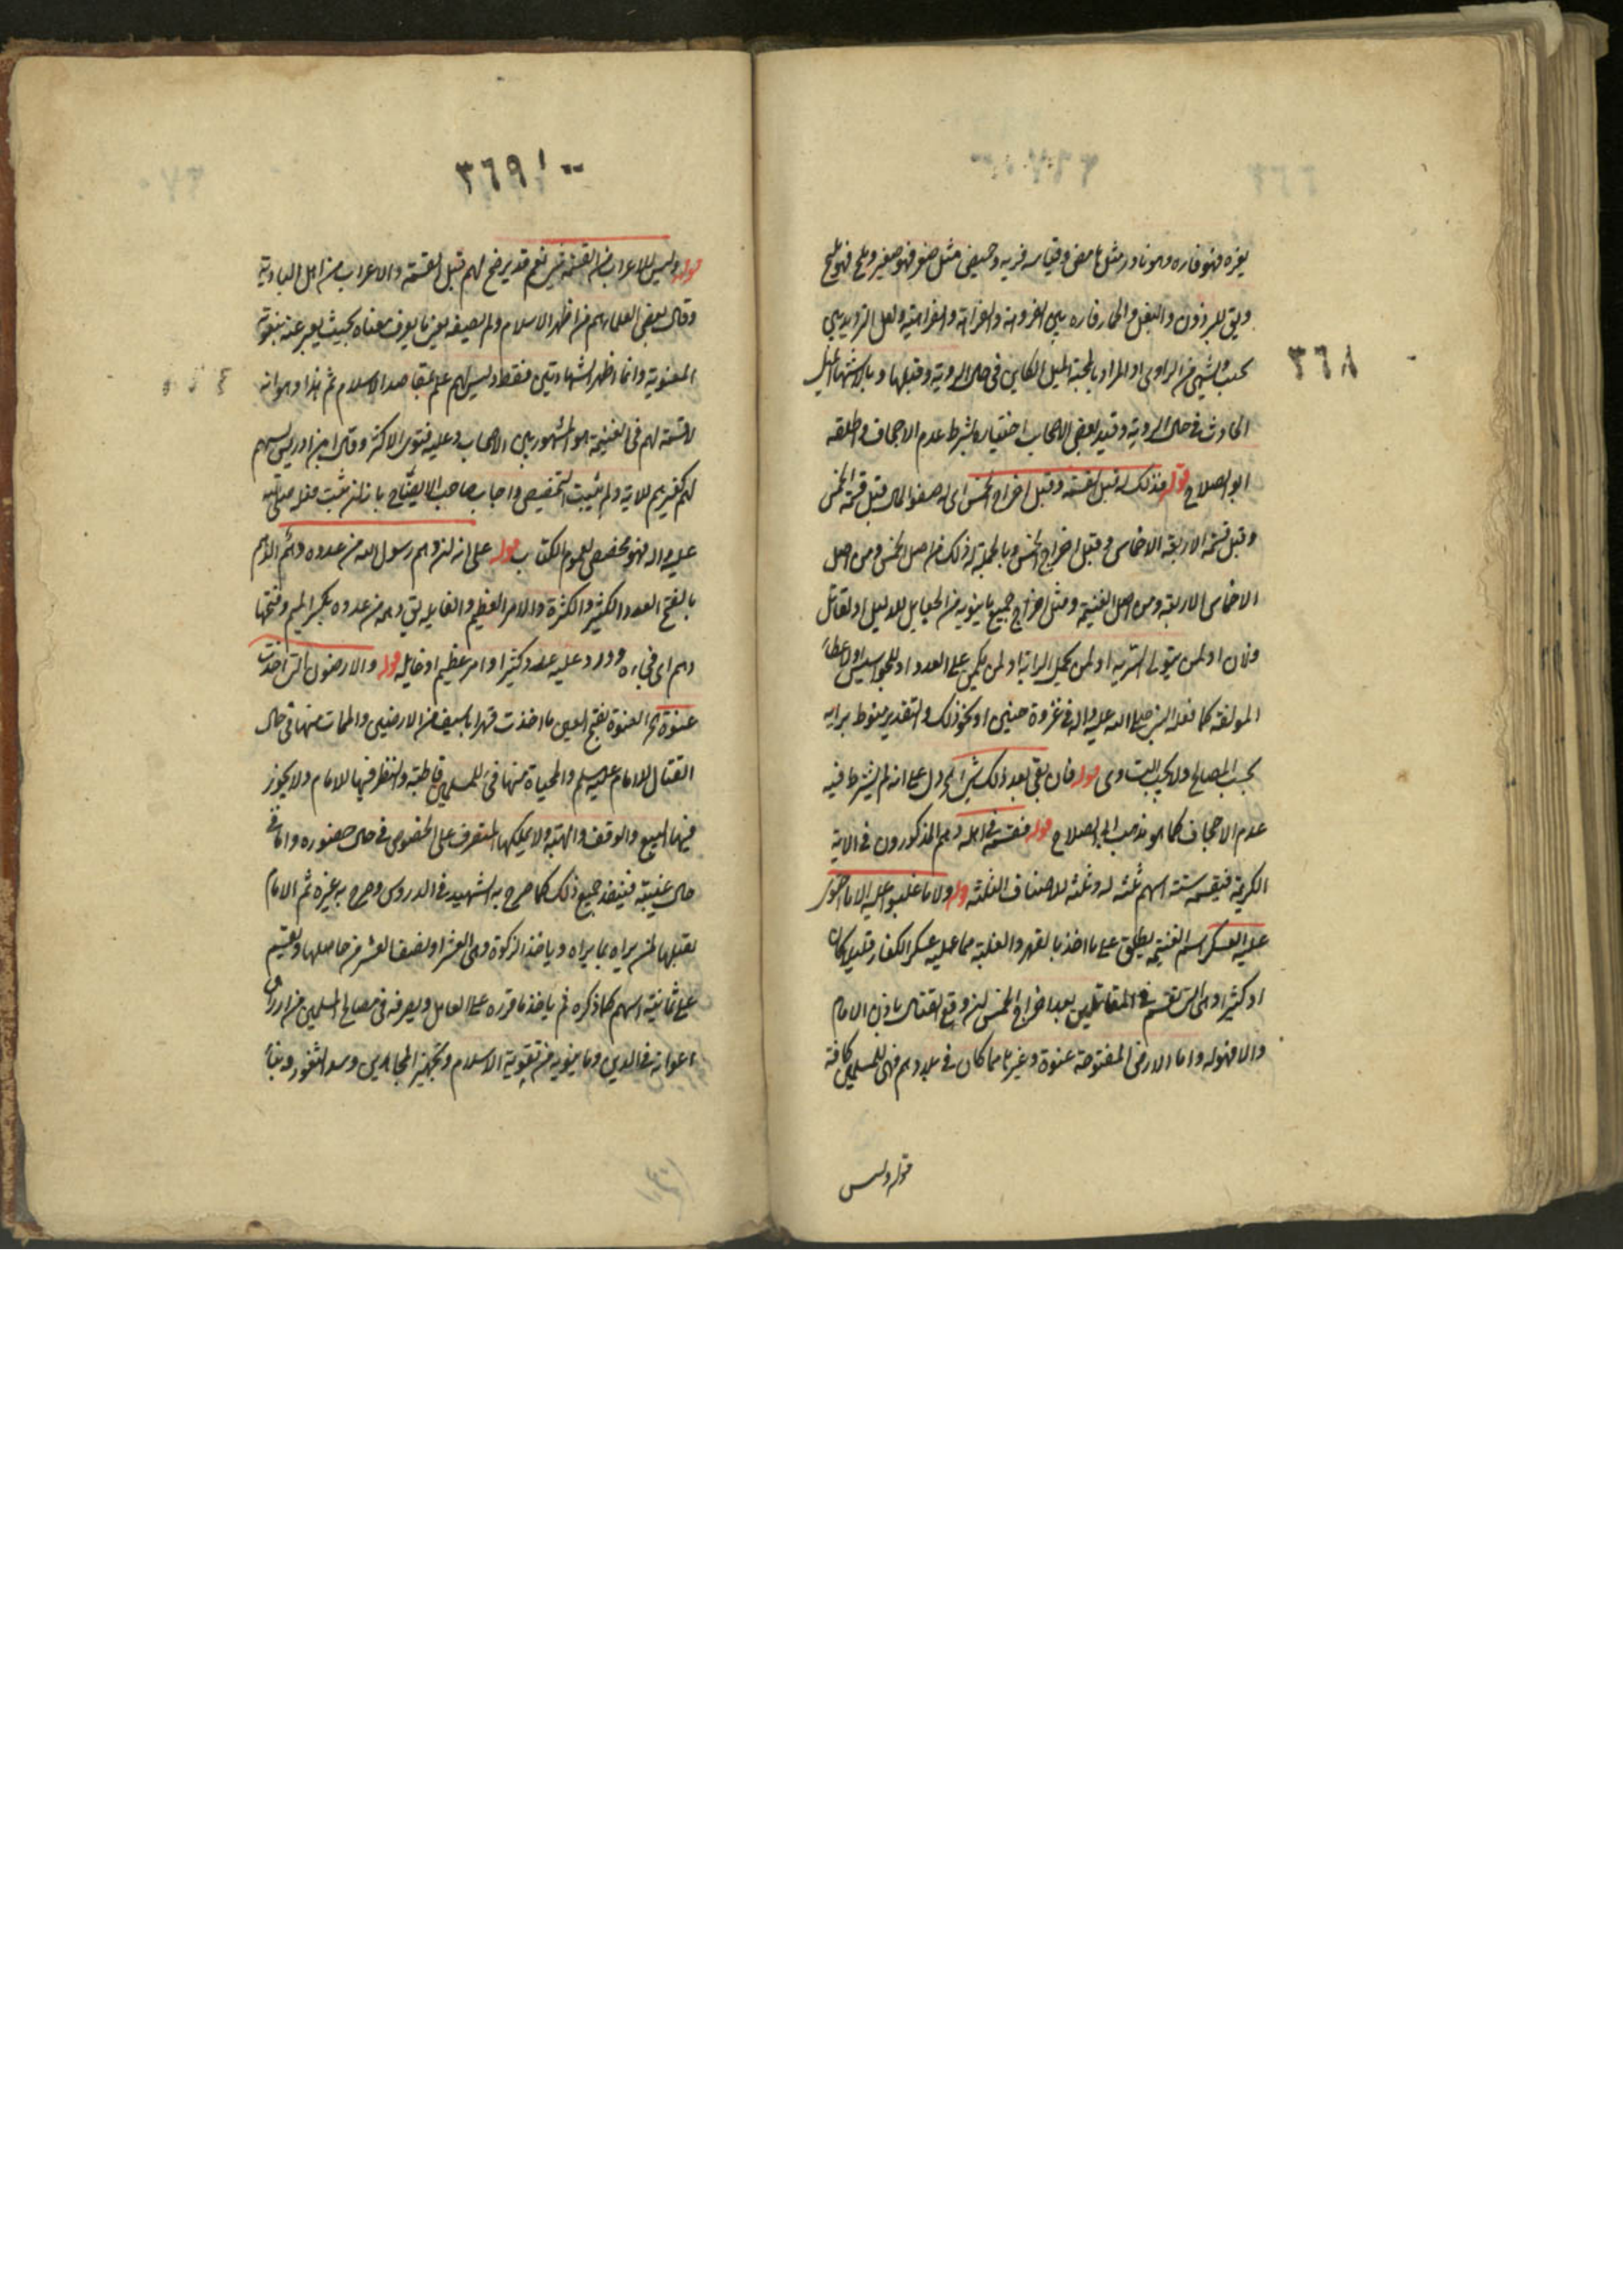 ٣٦٨
يفره فهو فاره وهو نادر مثل حامض وقياسه فريه وحميض مثل صغر فهو صغير وملح فهو مليح
ويق للبرذون والبغل والحمار فاره بين الفروهة والفراهة والفراهية ولعل الترديد بين
يحب ويشتهي من الراوي او المراد بالمحبة الميل الكاين في حال الروية وقبلها وبالاشتهاء الميل
الحادث في حال الروية وقيد بعض الاصحاب اختياره بشرط عدم الاجحاف واطلقه
ابو الصلاح قوله فذلك له قبل القسمة وقبل اخراج الخمس اي له صفو المال قبل قسمة الخمس
وقبل قسمة الاربعة الاخماس وقبل اخراج الخمس وبالجملة له ذلك من اصل الخمس ومن اصل
الاخماس الاربعة ومن اصل الغنيمة ومثل اخراج جميع ما ينوبه من الجعايل للدليل او لقاتل
فلان او لمن يتولى السرية او لمن يحمل الراية او لمن يكمن على العدو او للجواسيس او اعطاء
المولفة كما فعله النبي صلى الله عليه واله في غزوة حنين او نحو ذلك والتقدير منوط برايه
بحسب المصالح ولا يجب التساوي قوله فان بقي بعد ذلك شيء الخ دل على انه لم يشترط فيه
عدم الاجحاف كما هو مذهب ابي الصلاح قوله فقسمه في اهله وهم المذكورون في الاية
الكريمة فيقسمه ستة اسهم ثلثة له وثلثة للاصناف الثلثة قوله ولا ما غلبوا عليه الا ما احتوى
عليه العسكر اسم الغنيمة يطلق على ما اخذ بالقهر والغلبة مما عليه عسكر الكفار قليلا كان
او كثيرا وهي التي تقسم في المقاتلين بعد اخراج الخمس ان وقع القتال باذن الامام
والا فهو له واما الارض المفتوحة عنوة وغيرها مما كان في بلدهم فهي للمسلمين كافة
قوله وليس
٣٦٩
قوله وليس للاعراب من القسمة شيء نعم قد يرضخ لهم قبل القسمة والاعراب من اهل البادية
وقال بعض العلماء هم من اظهر الاسلام ولم يصفه يعني ما يعرف معناه بحيث يعبر عنه بنعوته
المعنوية وانما اظهر الشهادتين فقط وليس لهم علم بمقاصد الاسلام ثم هذا وهو انه
لا قسمة لهم في الغنيمة هو المشهور بين الاصحاب وعليه فتوى الاكثر وقال ابن ادريس يسهم
لهم كغيرهم للاية ولم يثبت التخصيص واجاب صاحب الايضاح بانه ان ثبت فعله صلى الله
عليه واله فهو مخصص لعموم الكتاب قوله على انه ان دهم رسول الله من عدوه دهم الدهم
بالفتح العدد الكثير والكثرة والامر العظيم والغايلة يق دهمه من عدوه بكسر الميم وفتحها
دهم اي فجاءه وورد عليه عدد كثير او امر عظيم او غايلة قوله والارضون التي اخذت
عنوة الخ العنوة بفتح العين ما اخذت قهرا بالسيف من الارضين والموات منها في حال
القتال للامام عليه السلم والمحياة منها فيء للمسلمين قاطبة والنظر فيها للامام ولا يجوز
فيها البيع والوقف والهبة ولا يملكها المتصرف على الخصوص في حال حضوره واما في
حال غيبته فينفذ جميع ذلك كما صرح به الشهيد في الدروس وصرح به غيره ثم الامام
يقبلها لمن يراه بما يراه وياخذ الزكوة وهي العشر او نصف العشر من حاصلها ويقسم
على ثمانية اسهم كما ذكره ثم ياخذ ما قرره على العامل ويصرفه في مصالح المسلمين من ارزاق
اعوانه في الدين وما ينوبه من تقوية الاسلام وتجهيز المجاهدين وسد الثغور وبناء